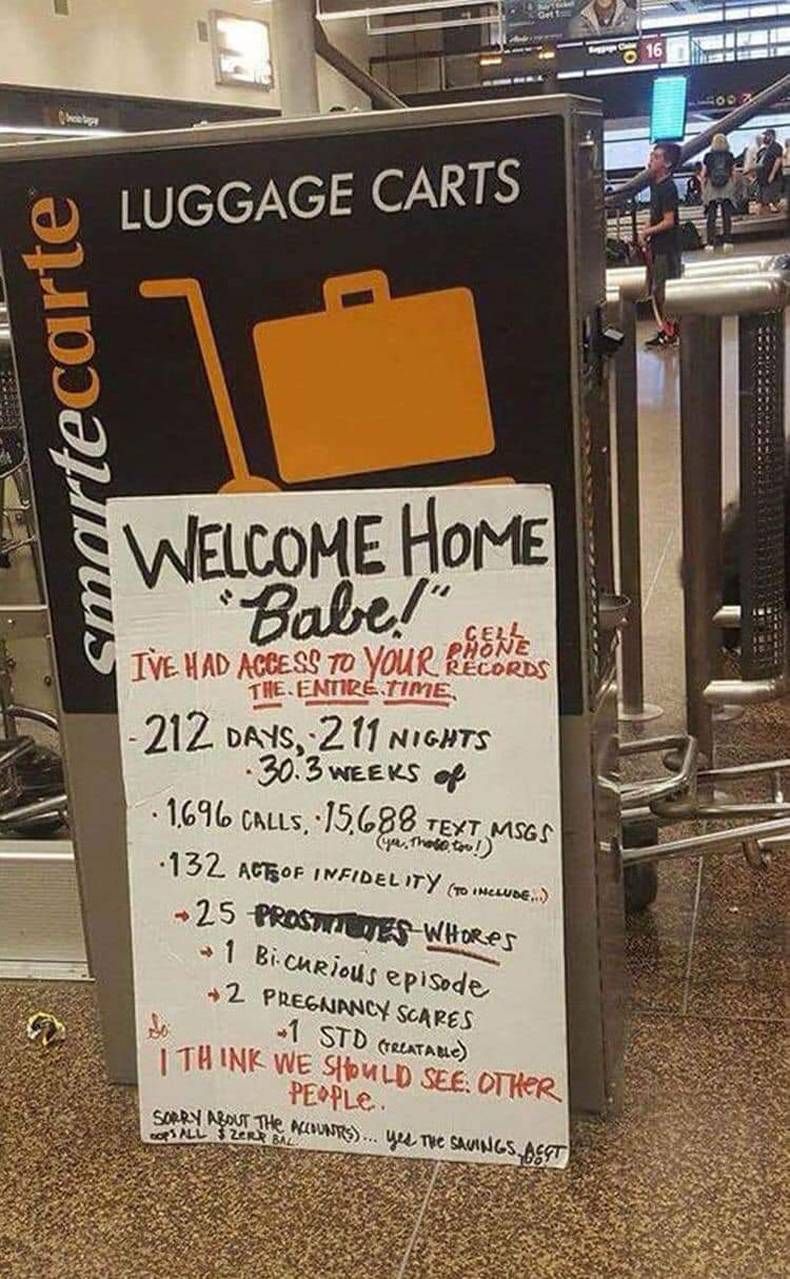 Get 1
Baggage Claim 16
LUGGAGE CARTS
smartecarte
WELCOME HOME
"Babe!"
I'VE HAD ACCESS TO YOUR CELL PHONE RECORDS
THE ENTIRE TIME.
-212 DAYS, ·211 NIGHTS
·30.3 WEEKS of
·1,696 CALLS, ·15,688 TEXT MSGS
(yes, those too!)
·132 ACTS OF INFIDELITY (TO INCLUDE...)
→25 PROSTITUTES WHORES
→1 Bi-CURIOUS episode
→2 PREGNANCY SCARES
→1 STD (TREATABLE)
So
I THINK WE SHOULD SEE OTHER
PEOPLE.
SORRY ABOUT THE ACCOUNT(S)... yes THE SAVINGS ACCT
OOPS ALL $ ZERO BAL. TOO!